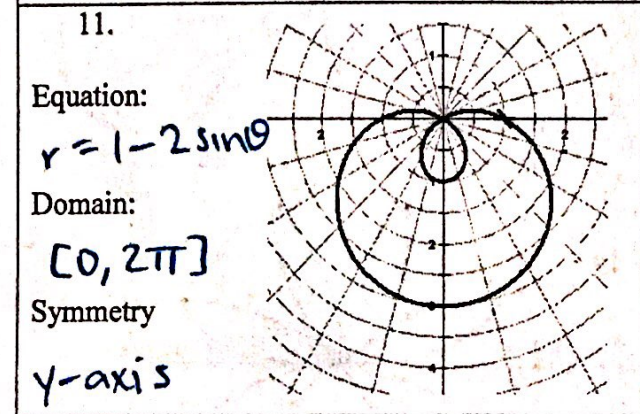 11.
Equation:
r = 1 - 2 sinθ
Domain:
[0, 2π]
Symmetry
y-axis
1
2
2
-2
4